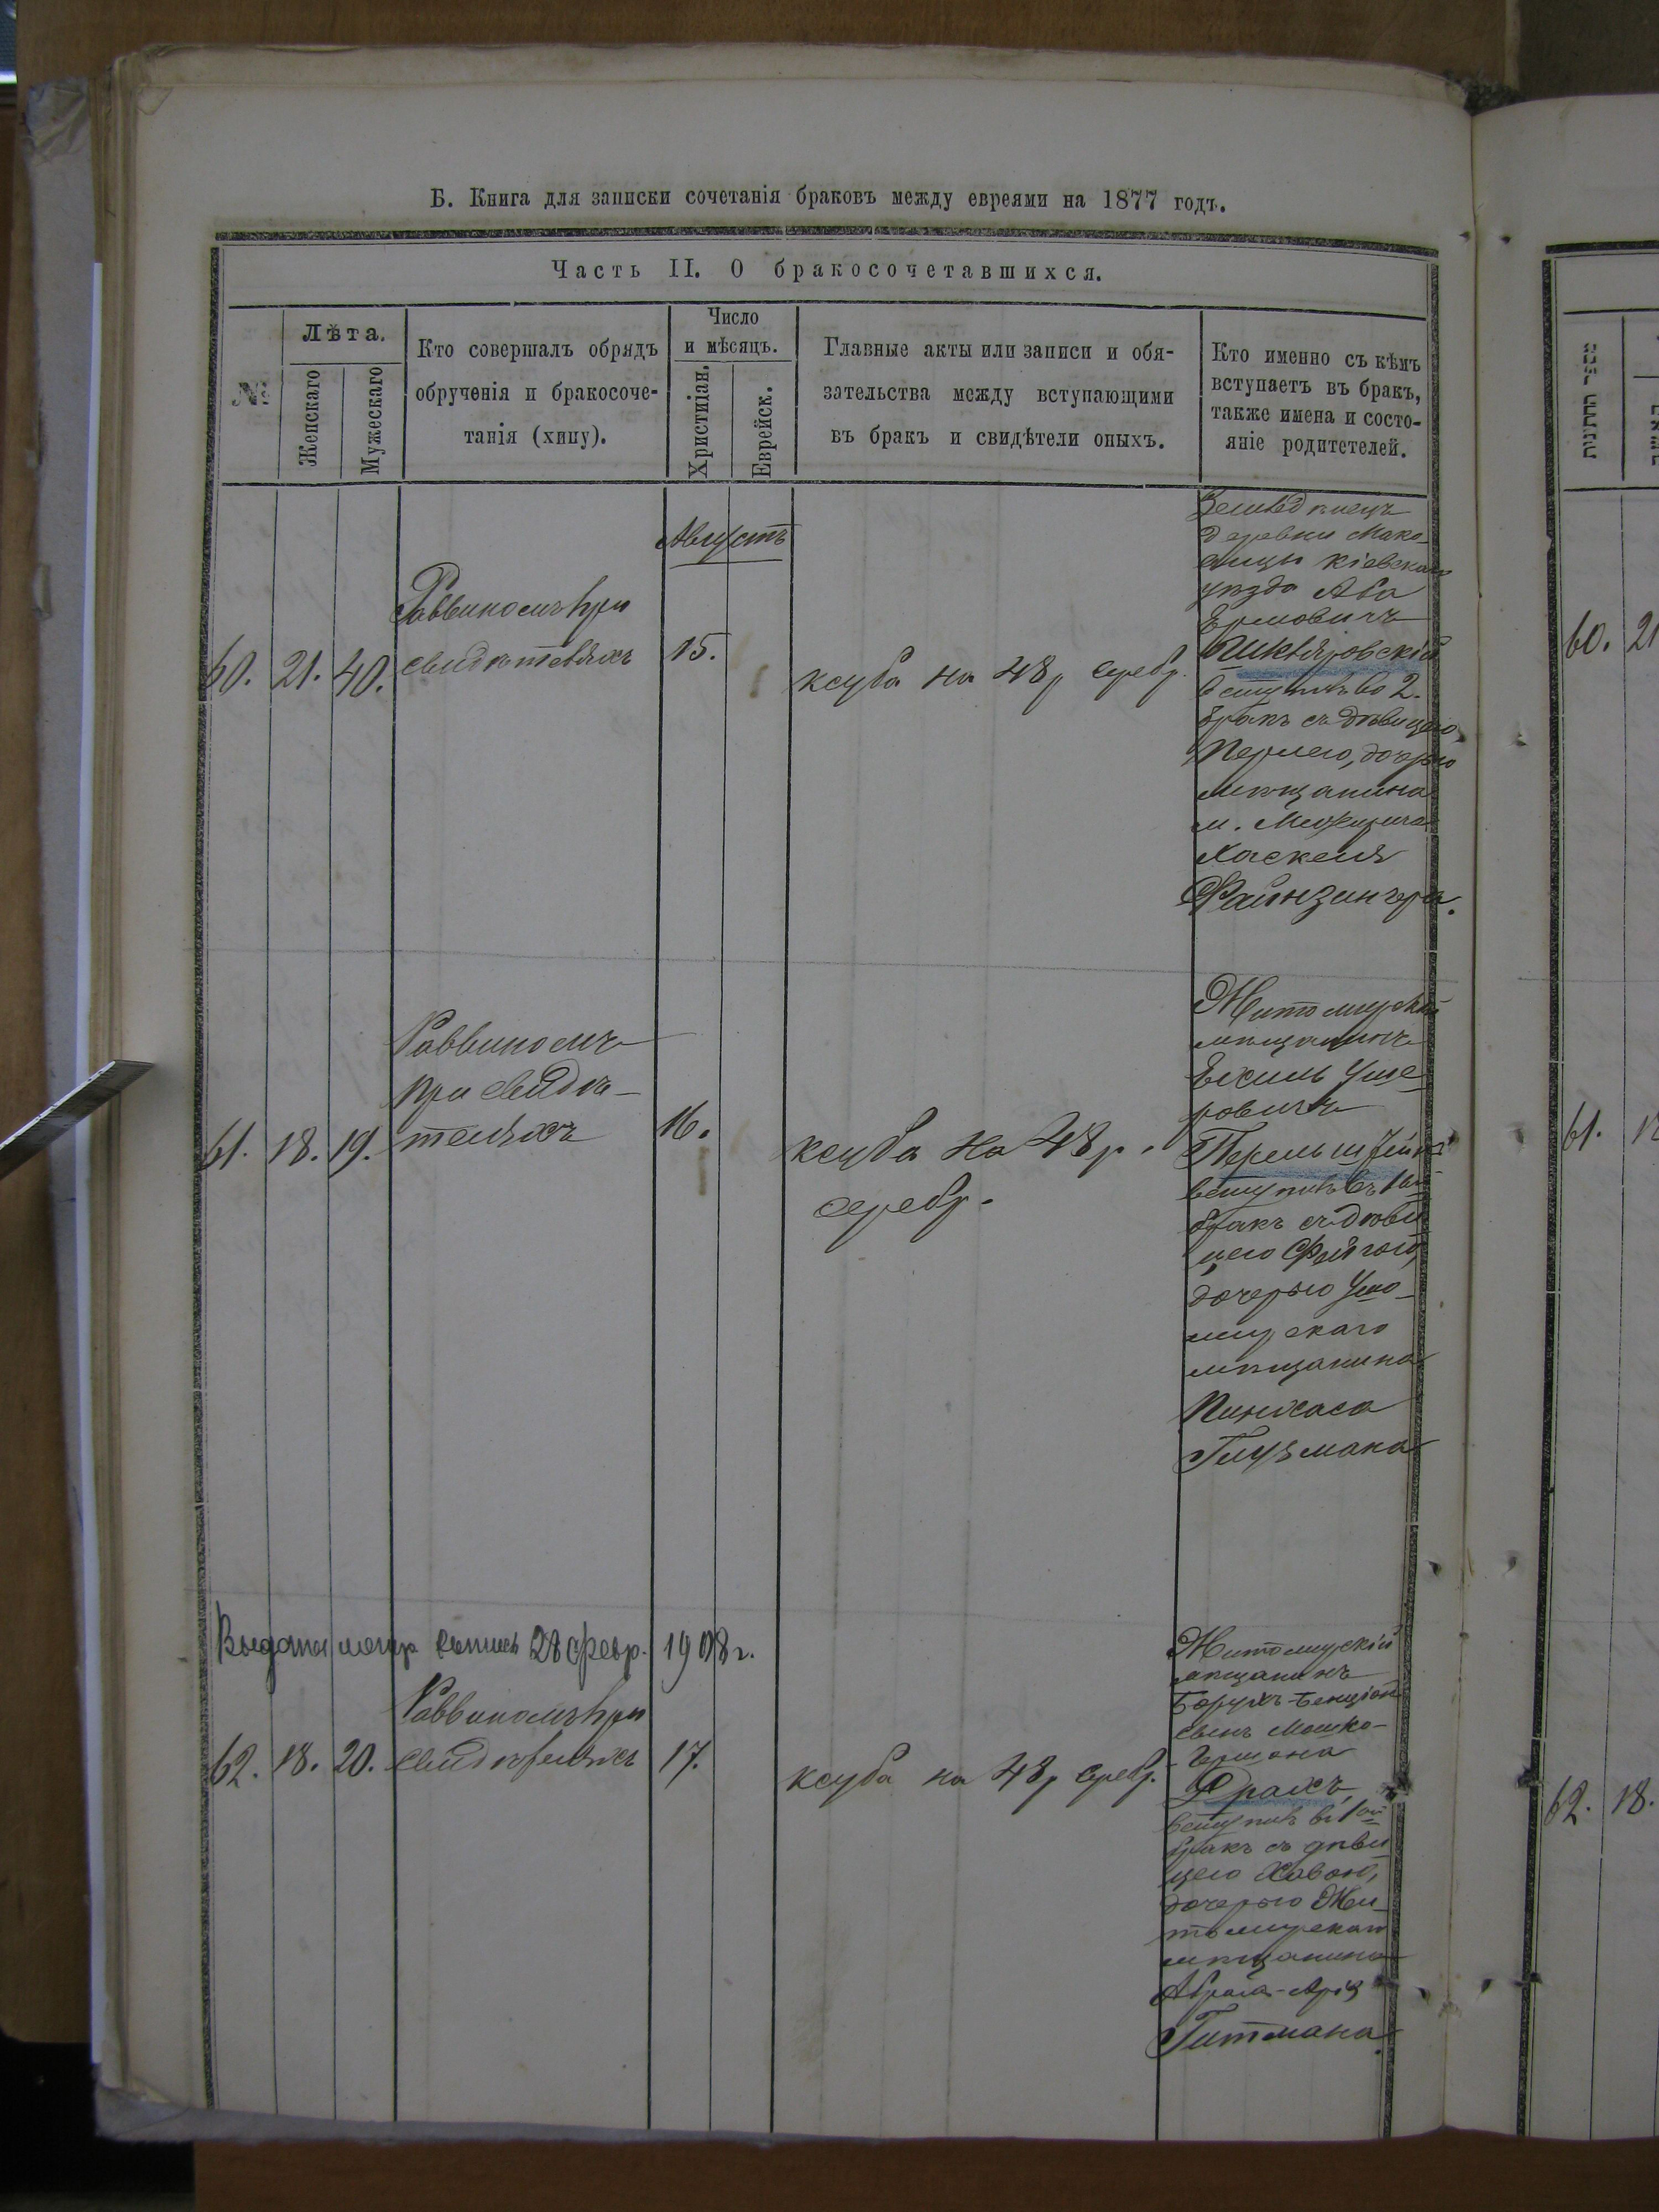 Б. Книга для записки сочетанія браковъ между евреями на 1877 годъ.
Часть II. О бракосочетавшихся.
№
Лѣта.
Женскаго
Мужескаго
Кто совершалъ обрядъ
обрученія и бракосоче-
танія (хипу).
Число
и мѣсяцъ.
Христиіан.
Еврейск.
Главные акты или записи и обя-
зательства между вступающими
въ бракъ и свидѣтели оныхъ.
Кто именно съ кѣмъ
вступаетъ въ бракъ,
также имена и состо-
яніе родитетелей.
Августъ
60. 21. 40.
Раввиномъ при
свидѣтеляхъ
15.
ксуба на 48 р серебр.
деревни Мако-
кіевскаго
уѣзда Аба
Шкляровскій
вступилъ во 2.
бракъ съ дѣвицею
Перлею, дочерью
мѣщанина
м. Межирича
Хаскеля
Файнзингера.
61. 18. 19.
Раввиномъ
при свидѣ-
теляхъ
16.
ксуба на 48 р.
серебр.
Житомирскій
мѣщанинъ
Ехиль Уше-
ровичъ
Перельштейнъ
вступилъ въ 1ый
бракъ съ дѣви
цею Фейгою,
дочерью Ушо-
мирскаго
мѣщанина
Пинхаса
Глузмана
Выдана метр. выпись 28 февр. 1908 г.
62. 18. 20.
Раввиномъ при
свидѣтеляхъ
17.
ксуба на 48 р серебр.
Житомирскій
мѣщанинъ
Борухъ-Бенціон
сынъ Мошко-
Гершона
Драхъ,
вступилъ въ 1ый
бракъ съ дѣви
цею Хавою,
дочерью Жи-
томирскаго
мѣщанина
Гитмана.
60. 21
61. 18
62. 18.